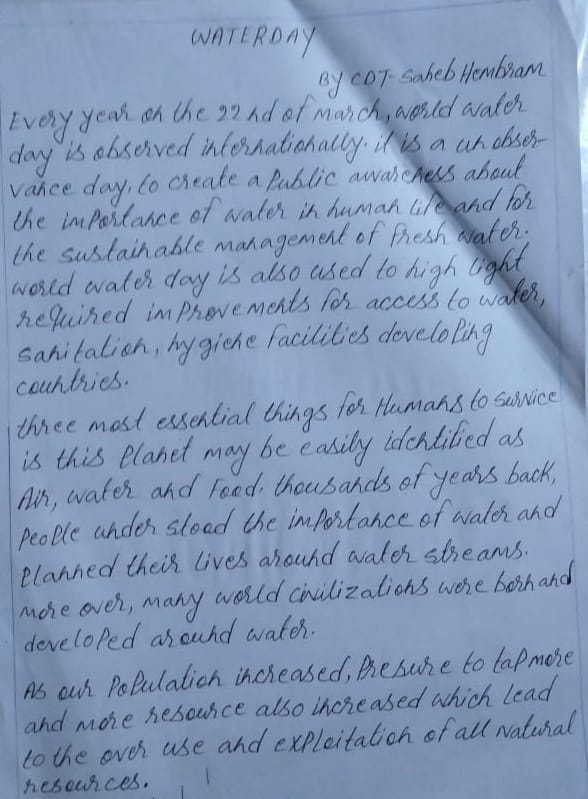 WATERDAY
By CDT- Saheb Hembram
Every year on the 22nd of march, world water
day is observed internationally. it is a un obser-
vance day, to create a Public awareness about
the importance of water in human life and for
the sustainable management of fresh water.
world water day is also used to high light
required improvements for access to water,
sanitation, hygiene facilities developing
countries.
three most essential things for Humans to survice
is this Planet may be easily identified as
Air, water and Food. thousands of years back,
People under stood the importance of water and
Planned their lives around water streams.
more over, many world civilizations were born and
developed around water.
As our Population increased, Presure to tap more
and more resource also increased which lead
to the over use and exploitation of all Natural
resources.